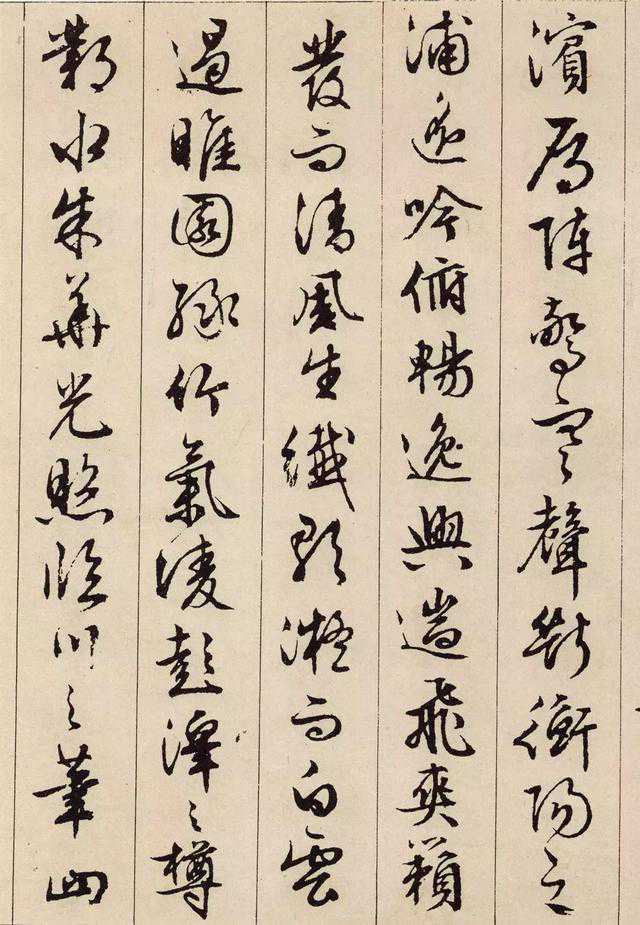 濱鴈陣驚寒聲斷衡陽之
浦遙吟俯暢逸興遄飛爽籟
發而清風生纖歌凝而白雲
遏睢園綠竹氣凌彭澤之樽
鄴水朱華光照臨川之筆四